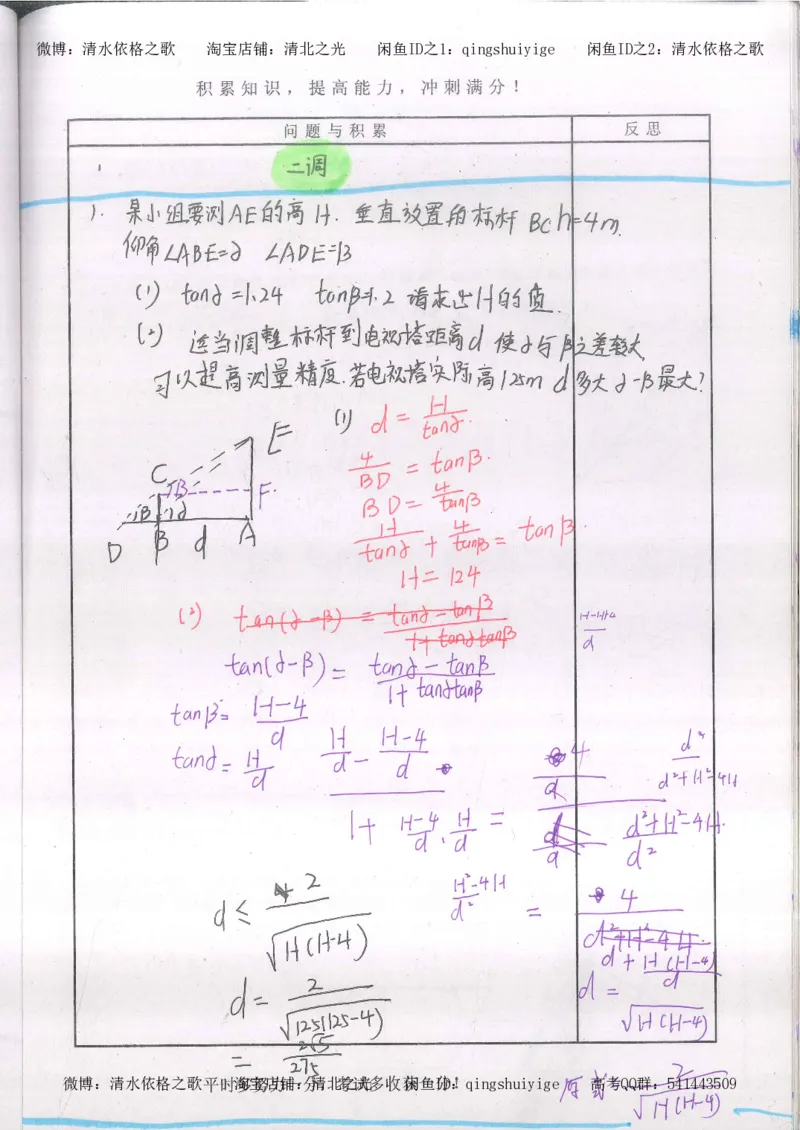 微博：清水依格之歌 淘宝店铺：清北之光 闲鱼ID之1：qingshuiyige 闲鱼ID之2：清水依格之歌
积累知识，提高能力，冲刺满分！
问题与积累 反思
二调
1. 某小组要测AE的高H. 垂直放置的标杆 BC h=4m.
仰角∠ABE=α ∠ADE=β
(1) tanα=1.24 tanβ=1.2 请求出H的值.
(2) 适当调整标杆到电视塔距离d 使α与β之差较大
可以提高测量精度.若电视塔实际高125m d多大 α-β最大?
(1) d = H/tanα.
4/BD = tanβ.
BD = 4/tanβ
E
C
F.
D B d A
H/tanα + 4/tanβ = tanβ.
H = 124
(2) tan(α-β) = (tanα-tanβ)/(1+tanαtanβ)
tan(α-β) = (tanα-tanβ)/(1+tanαtanβ)
H-H+4/d
tanβ = (H-4)/d
tanα = H/d
H/d - (H-4)/d
1 + (H-4)/d · H/d =
4/d
(d²+H²-4H)/d²
d²/(d²+H²-4H)
(H²-4H)/d²
= 4/(d + H(H-4)/d)
d = √H(H-4)
d ≤ 2/√H(H-4)
d = 2/√125(125-4)
= 2√5/275
原式 2/√H(H-4)
微博：清水依格之歌 淘宝店铺：清北之光 闲鱼ID：qingshuiyige 高考QQ群：541443509